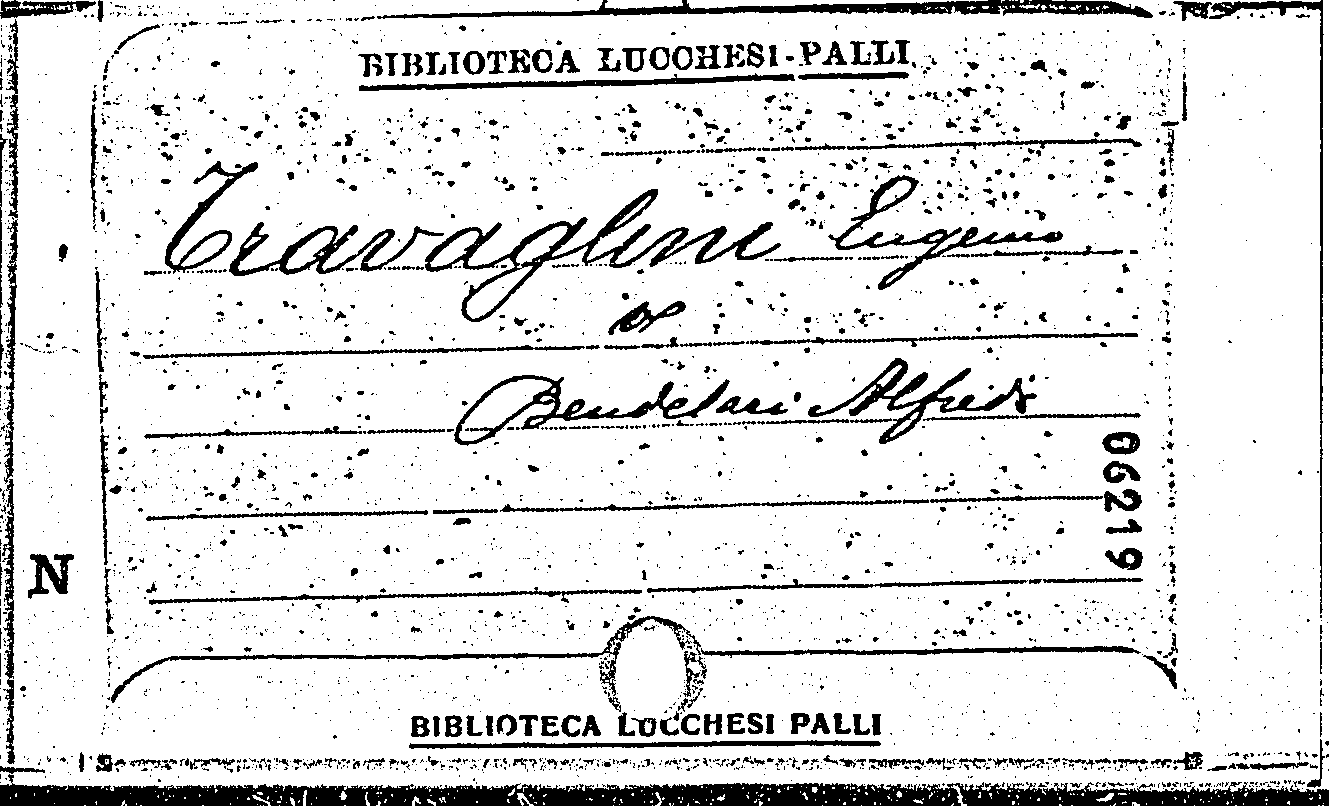 BIBLIOTECA LUCCHESI-PALLI
Travaglini Eugenio
Bendelari Alfredo
06219
N
BIBLIOTECA LUCCHESI PALLI